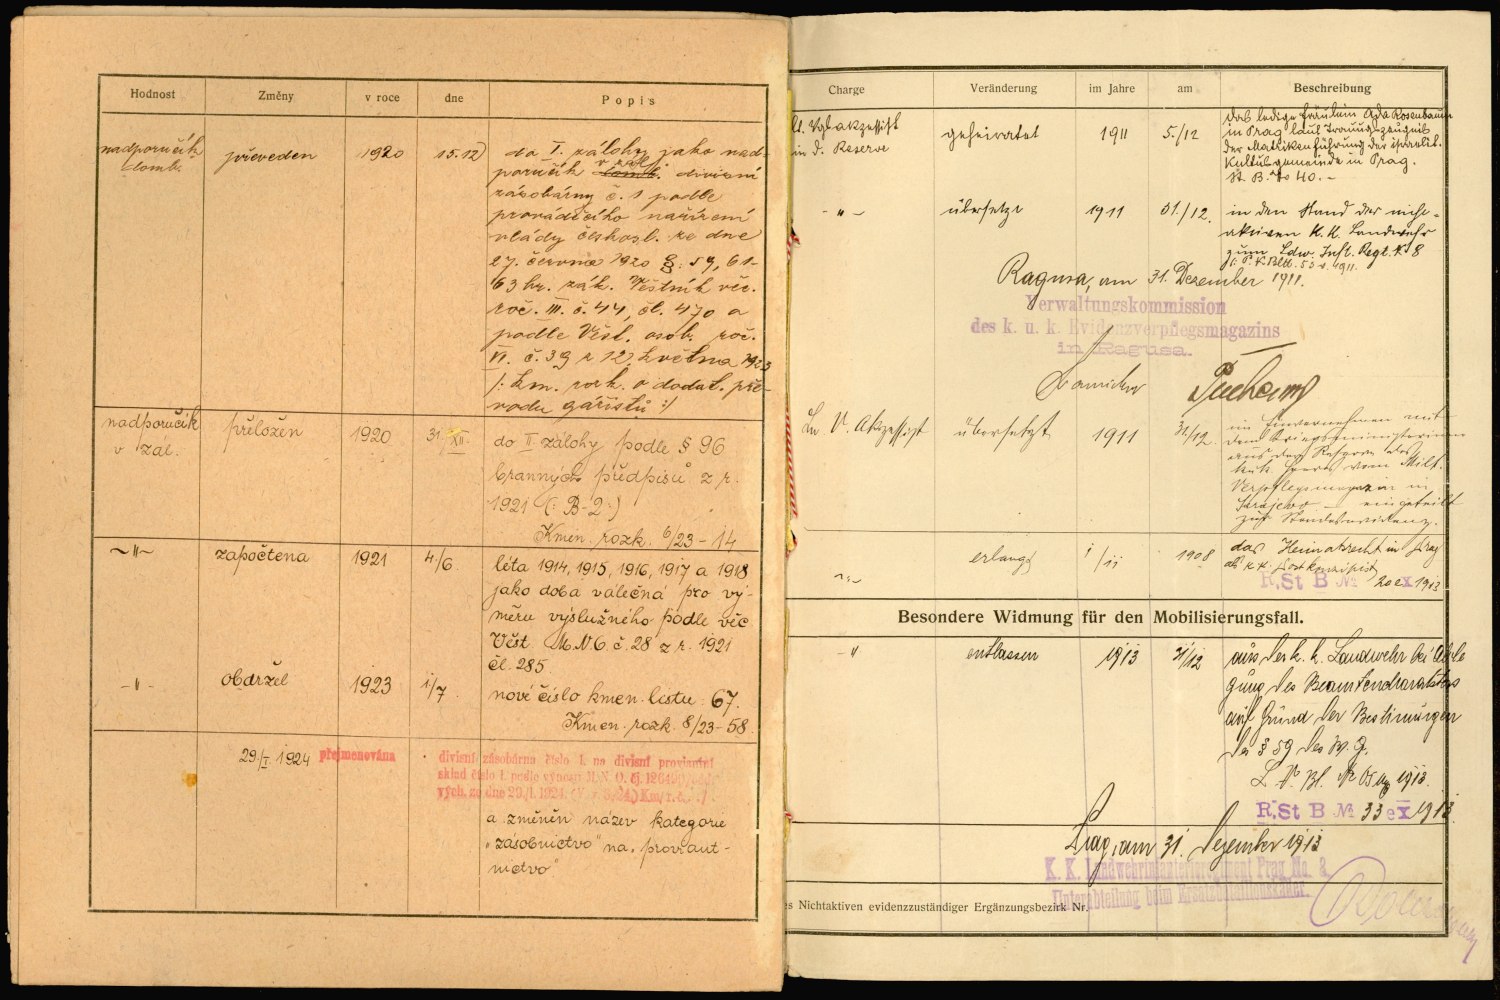 Hodnost Změny v roce dne Popis
nadporučík domb. převeden 1920 15.12 do I. zálohy jako nad-
poručík v zál. domb. divisní
zásobárny č. 1 podle
prováděcího nařízení
vlády českosl. ze dne
27. června 1920 §: 59, 61-
63 br. zák. Věstník věc.
roč. III. č. 44, čl. 470 a
podle Věst. osob. roč.
VI. č. 39 z 12. května 1923
/: km. rozk. o dodat. pře-
vodu gážistů :/
nadporučík v zál. přeložen 1920 31. XII. do II zálohy podle § 96
branných předpisů z r.
1921 (: B-2 :)
Kmen. rozk. 6/23 - 14
~"~ započtena 1921 4./6. léta 1914, 1915, 1916, 1917 a 1918
jako doba válečná pro vý-
měru výslužného podle věc
Věst. M.N.O. č. 28 z r. 1921
čl. 285.
-"- obdržel 1923 1/7. nové číslo kmen. listu 67.
Kmen. rozk. 8/23 - 58.
29/I 1924 přejmenována divisní zásobárna číslo 1. na divisní proviantní
sklad číslo 1. podle výnosu M. N. O. čj.
vých. ze dne 29./1. 1924.
a změněn název kategorie
"zásobnictvo" na "proviant-
nictvo"
Charge Veränderung im Jahre am Beschreibung
in d. Reserve geheiratet 1911 5./12 das ledige Fräulein Ada Rosenbaum
in Prag laut Trauungszeugnis
der Matrikenführung der israelit.
Kultusgemeinde in Prag.
St. B. No 40. -
-"- übersetzt 1911 31./12. in den Stand der nicht-
aktiven K. K. Landwehr
zum Ldw. Inft. Regt. № 8
Ragusa, am 31. Dezember 1911.
Verwaltungskommission
des k. u. k. Evidenzverpflegsmagazins
in Ragusa.
V. Akzessist übersetzt 1911 31./12. im Einvernehmen mit
dem Kriegsministerium
aus der Reserve des
k. u. k. Heeres vom Milit.
Verpflegsmagazin in
Sarajevo - eingeteilt
zur Standesevidenz.
erlangt 1/11 1908 das Heimatrecht in Prag
als k. k. Postkonzipist
R. St B № 20 ex 1913
Besondere Widmung für den Mobilisierungsfall.
-" entlassen 1913 31/12 aus der k. k. Landwehr bei Able
gung des Beamtencharakters
auf Grund der Bestimmungen
des § 59 des W. G.
R. St B № 33 ex 1913.
Prag, am 31. Dezember 1913
K. K. Landwehrinfanterieregiment Prag No. 8.
Unterabteilung beim Ersatzbataillonskader.
es Nichtaktiven evidenzzuständiger Ergänzungsbezirk Nr.